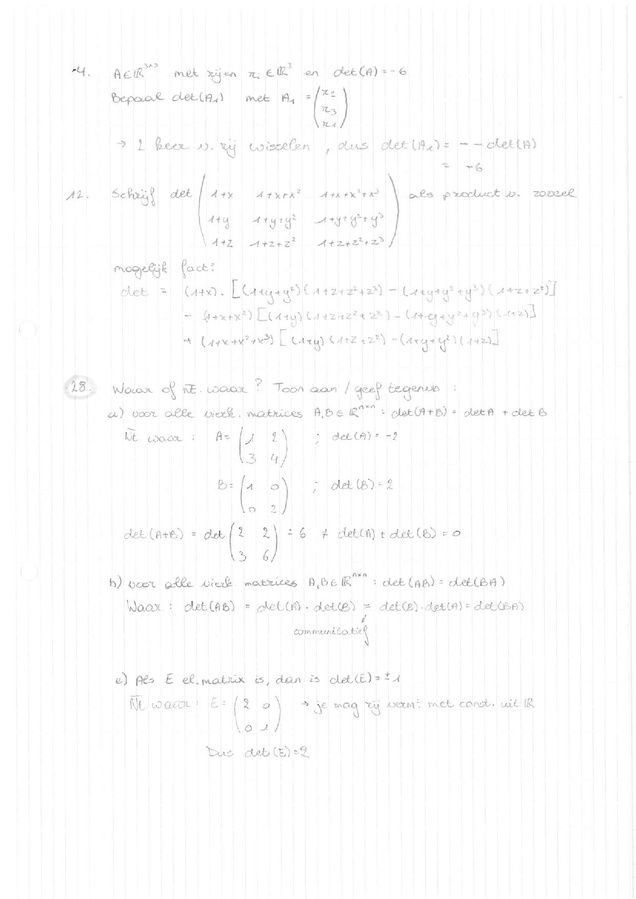 4. A ∈ ℝ³ˣ³ met rijen rᵢ ∈ ℝ³ en det(A) = -6
Bepaal det(A₁) met A₁ = (r₂
r₃
r₁)
→ 2 keer v. rij wisselen, dus det(A₁) = - - det(A)
= -6
12. Schrijf det (1+x 1+x+x² 1+x+x²+x³
1+y 1+y+y² 1+y+y²+y³
1+z 1+z+z² 1+z+z²+z³) als product v. zoveel
mogelijk fact:
det = (1+x). [(1+y+y²)(1+z+z²+z³) - (1+y+y²+y³)(1+z+z²)]
- (1+x+x²) [(1+y)(1+z+z²+z³) - (1+y+y²+y³)(1+z)]
+ (1+x+x²+x³) [(1+y)(1+z+z²) - (1+y+y²)(1+z)]
28. Waar of nt. waar? Toon aan / geef tegenvb:
a) voor alle vierk. matrices A,B ∈ ℝⁿˣⁿ : det(A+B) = det A + det B
Nt waar : A = (1 2
3 4) ; det(A) = -2
B = (1 0
0 2) ; det(B) = 2
det(A+B) = det (2 2
3 6) = 6 ≠ det(A) + det(B) = 0
b) voor alle vierk matrices A,B ∈ ℝⁿˣⁿ : det(AB) = det(BA)
Waar : det(AB) = det(A) . det(B) = det(B) . det(A) = det(BA)
communicatief
c) Als E el. matrix is, dan is det(E) = ±1
Nt waar : E = (2 0
0 1) → je mag rij verm. met const. uit ℝ
Dus det(E) = 2